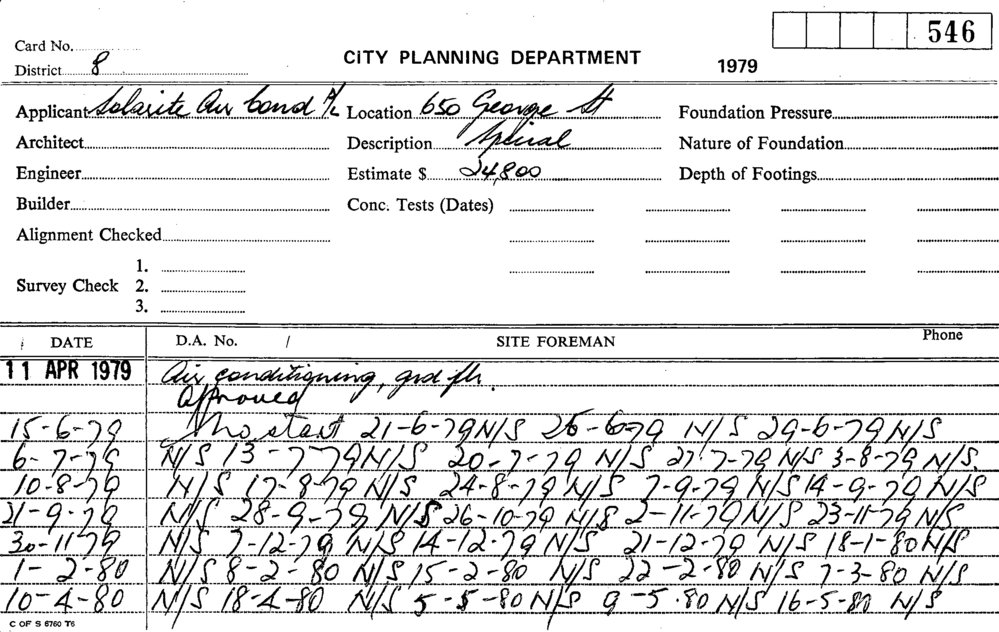 546
Card No.
CITY PLANNING DEPARTMENT
District 8
1979
Applicant Solarite Air Cond P/L Location 650 George St Foundation Pressure
Architect Description Special Nature of Foundation
Engineer Estimate $ 24,800 Depth of Footings
Builder Conc. Tests (Dates)
Alignment Checked
1.
Survey Check 2.
3.
DATE D.A. No. / SITE FOREMAN Phone
11 APR 1979 Air conditioning, grd flr.
Approved
15-6-79 No start 21-6-79 N/S 26-6-79 N/S 29-6-79 N/S
6-7-79 N/S 13-7-79 N/S 20-7-79 N/S 27-7-79 N/S 3-8-79 N/S.
10-8-79 N/S 17-8-79 N/S 24-8-79 N/S 7-9-79 N/S 14-9-79 N/S
21-9-79 N/S 28-9-79 N/S 26-10-79 N/S 2-11-79 N/S 23-11-79 N/S
30-11-79 N/S 7-12-79 N/S 14-12-79 N/S 21-12-79 N/S 18-1-80 N/S
1-2-80 N/S 8-2-80 N/S 15-2-80 N/S 22-2-80 N/S 7-3-80 N/S
10-4-80 N/S 18-4-80 N/S 5-5-80 N/S 9-5-80 N/S 16-5-80 N/S
C OF S 6760 T6